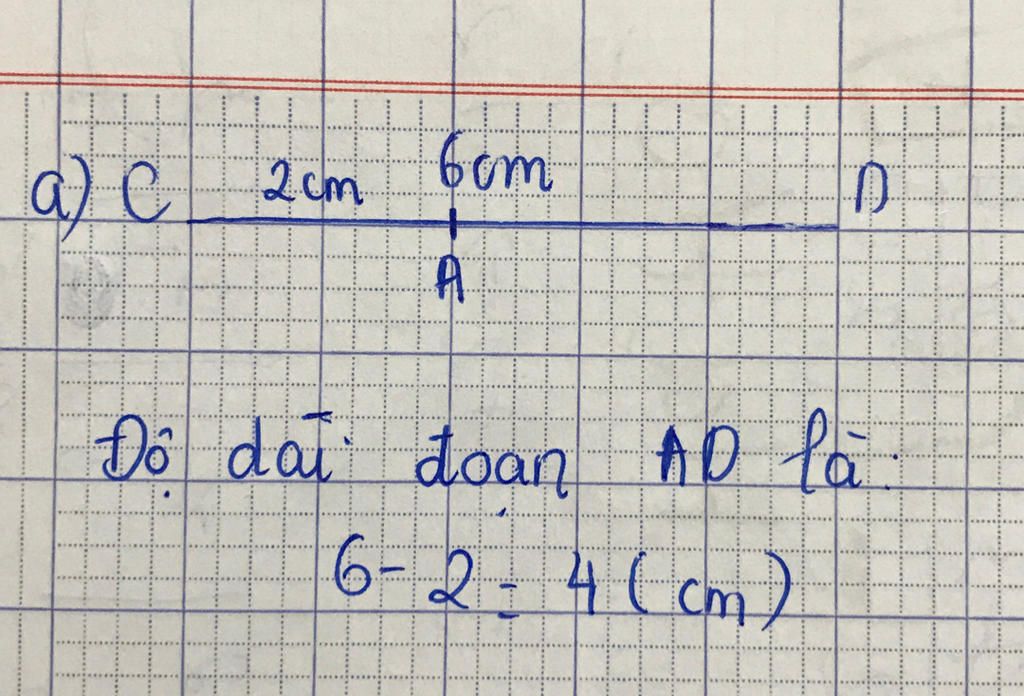 a) C 2cm 6cm D
A
Độ dài đoạn AD là:
6 - 2 = 4 (cm)